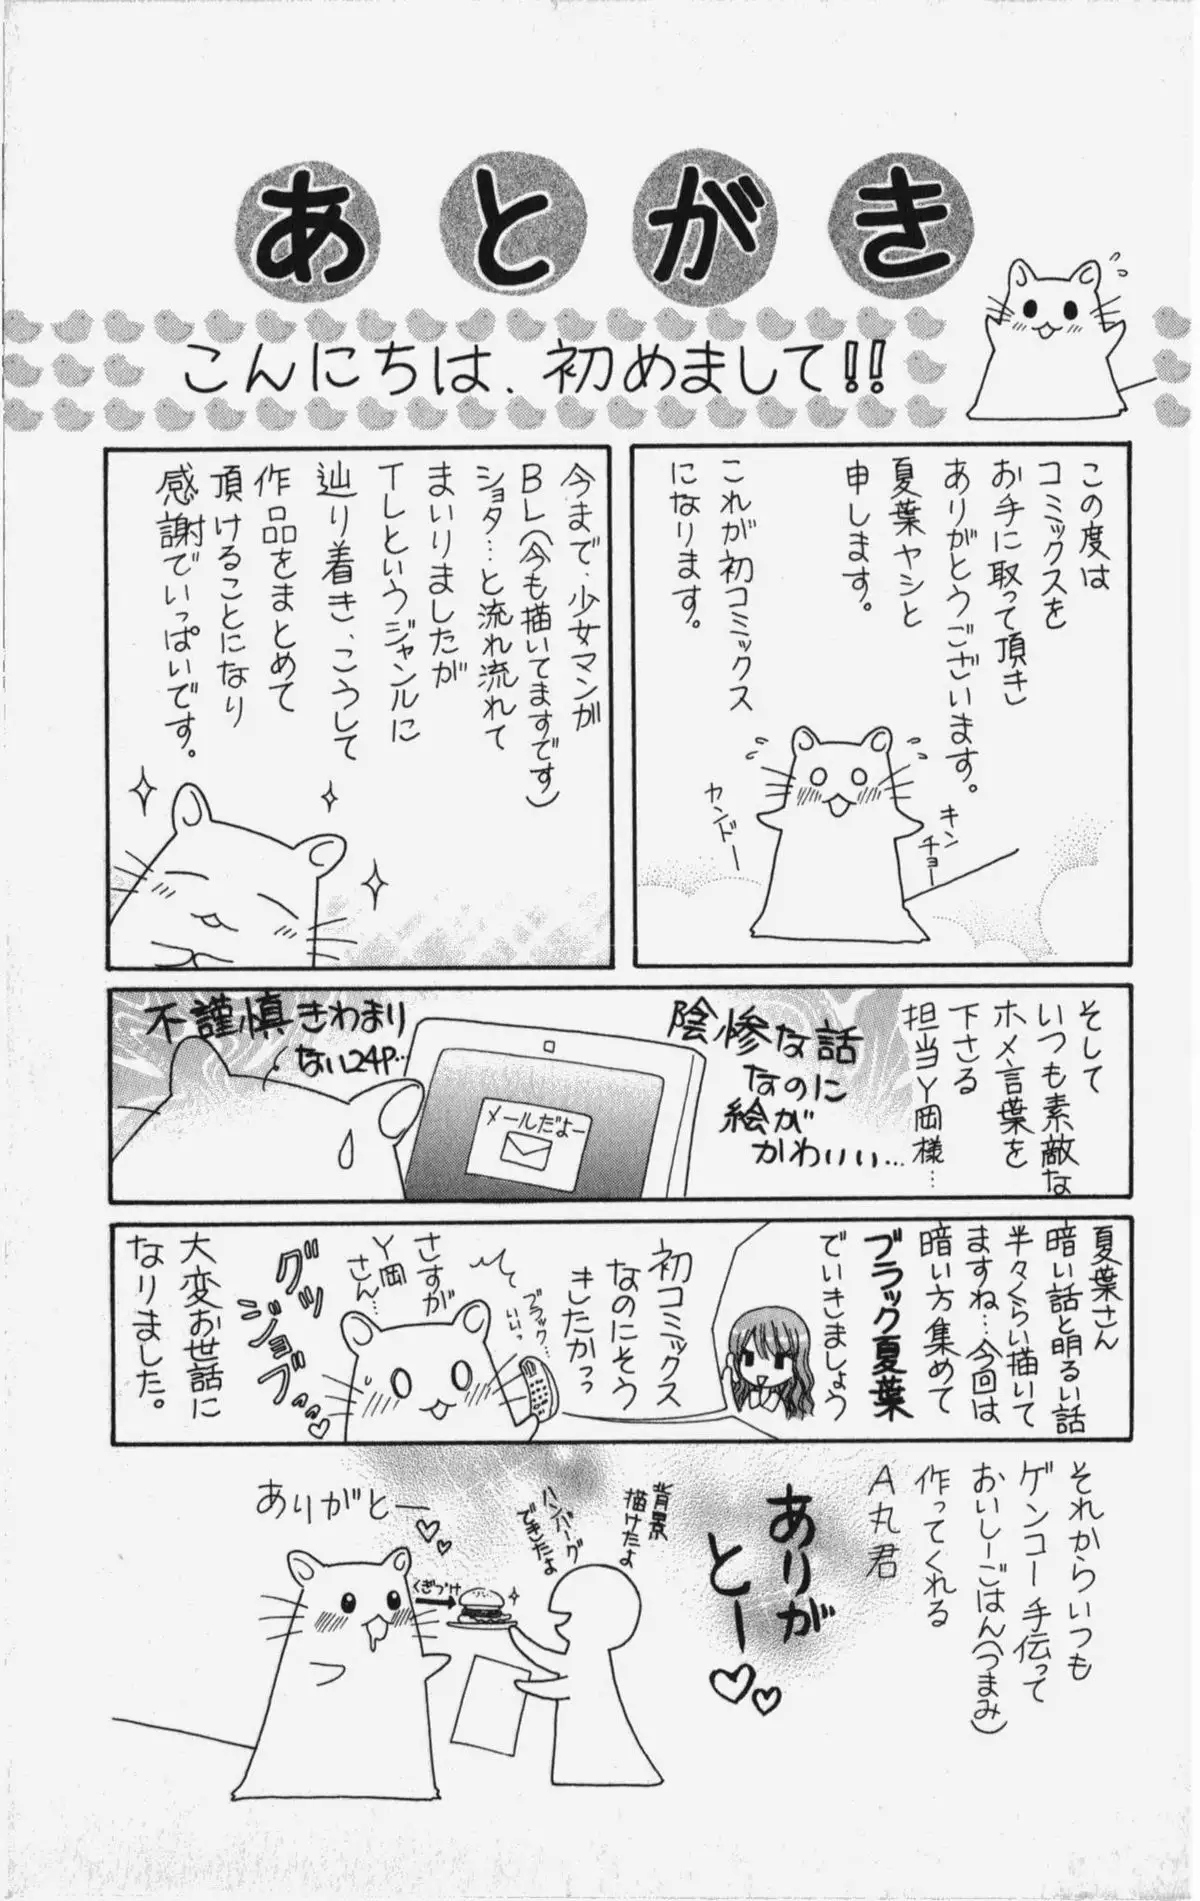 あとがき
こんにちは、初めまして!!
この度は
コミックスを
お手に取って頂き
ありがとうございます。
夏葉ヤシと
申します。
これが初コミックス
になります。
カンドー
キン
チョー
今まで、少女マンガ
BL(今も描いてますです)
ショタ…と流れ流れて
まいりましたが
TLというジャンルに
辿り着き、こうして
作品をまとめて
頂けることになり
感謝でいっぱいです。
そして
いつも素敵な
ホメ言葉を
下さる
担当Y岡様…
陰惨な話
なのに
絵が
かわいい…
メールだよー
不謹慎きわまり
ない24P…
夏葉さん
暗い話と明るい話
半々くらい描いて
ますね…今回は
暗い方集めて
ブラック夏葉
でいきましょう
初コミックス
なのにそう
きたかっっ
ブラック…
いいっ
さすが
Y岡
さん…
グッ
ジョブ…
大変お世話に
なりました。
それからいつも
ゲンコー手伝って
おいしーごはん(つまみ)
作ってくれる
A丸君
ありが
とー♡♡
背景
描けたよ
ハンバーグ
できたよ
くぎづけ
ありがとー♡♡